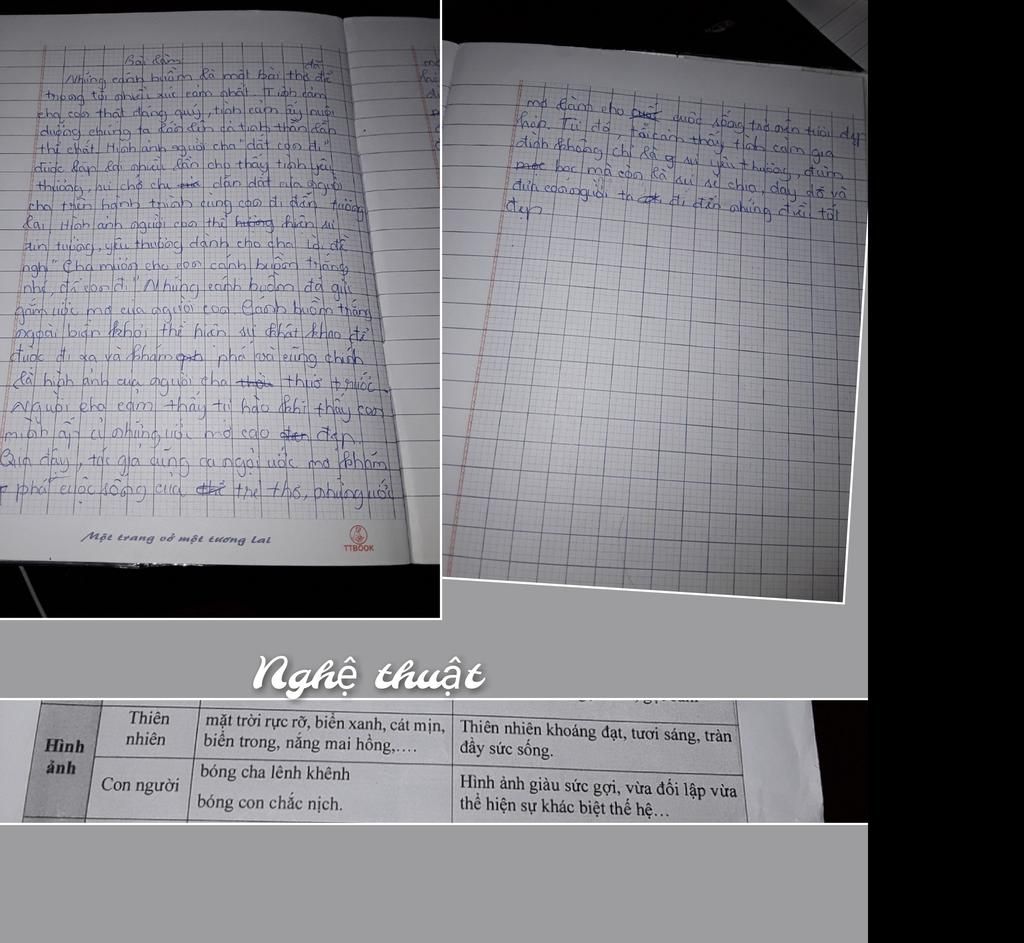 Bài làm
Những cánh buồm là một bài thơ đã để
trong tôi nhiều xúc cảm nhất. Tình cảm
cha con thật đáng quý, tình cảm ấy nuôi
dưỡng chúng ta lớn lên cả tinh thần lẫn
thể chất. Hình ảnh người cha "dắt con đi"
được lặp lại nhiều lần cho thấy tình yêu
thương, sự chở che dẫn dắt của người
cha trên hành trình cùng con đi đến tương
lai. Hình ảnh người con thể hiện sự
tin tưởng, yêu thương dành cho cha lời đề
nghị "Cha mượn cho con cánh buồm trắng
nhé, để con đi." Những cánh buồm đã gửi
gắm ước mơ của người con. Cánh buồm trắng
ngoài biển khơi thể hiện sự khát khao để
được đi xa và khám phá và cũng chính
là hình ảnh của người cha thuở trước.
Người cha cảm thấy tự hào khi thấy con
mình ấp ủ những ước mơ cao đẹp.
Qua đây, tác giả cũng ca ngợi ước mơ khám
phá cuộc sống của trẻ thơ, những ước
Một trang vở một tương lai
TTBOOK
mơ dành cho cuộc sống trở nên tươi đẹp
hơn. Từ đó, tôi cảm thấy tình cảm gia
đình không chỉ là sự yêu thương, đùm
bọc mà còn là sự sẻ chia, dạy dỗ và
đưa con người ta đi đến những điều tốt
đẹp
Nghệ thuật
Hình ảnh
Thiên nhiên
mặt trời rực rỡ, biển xanh, cát mịn,
biển trong, nắng mai hồng,....
Thiên nhiên khoáng đạt, tươi sáng, tràn
đầy sức sống.
Con người
bóng cha lênh khênh
bóng con chắc nịch.
Hình ảnh giàu sức gợi, vừa đối lập vừa
thể hiện sự khác biệt thế hệ...